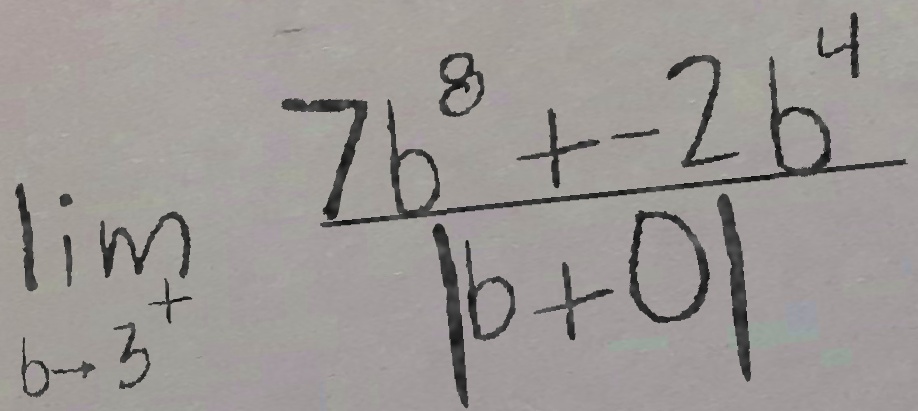 \lim_{b \to 3^+} \frac{7b^8 + -2b^4}{|b+0|}